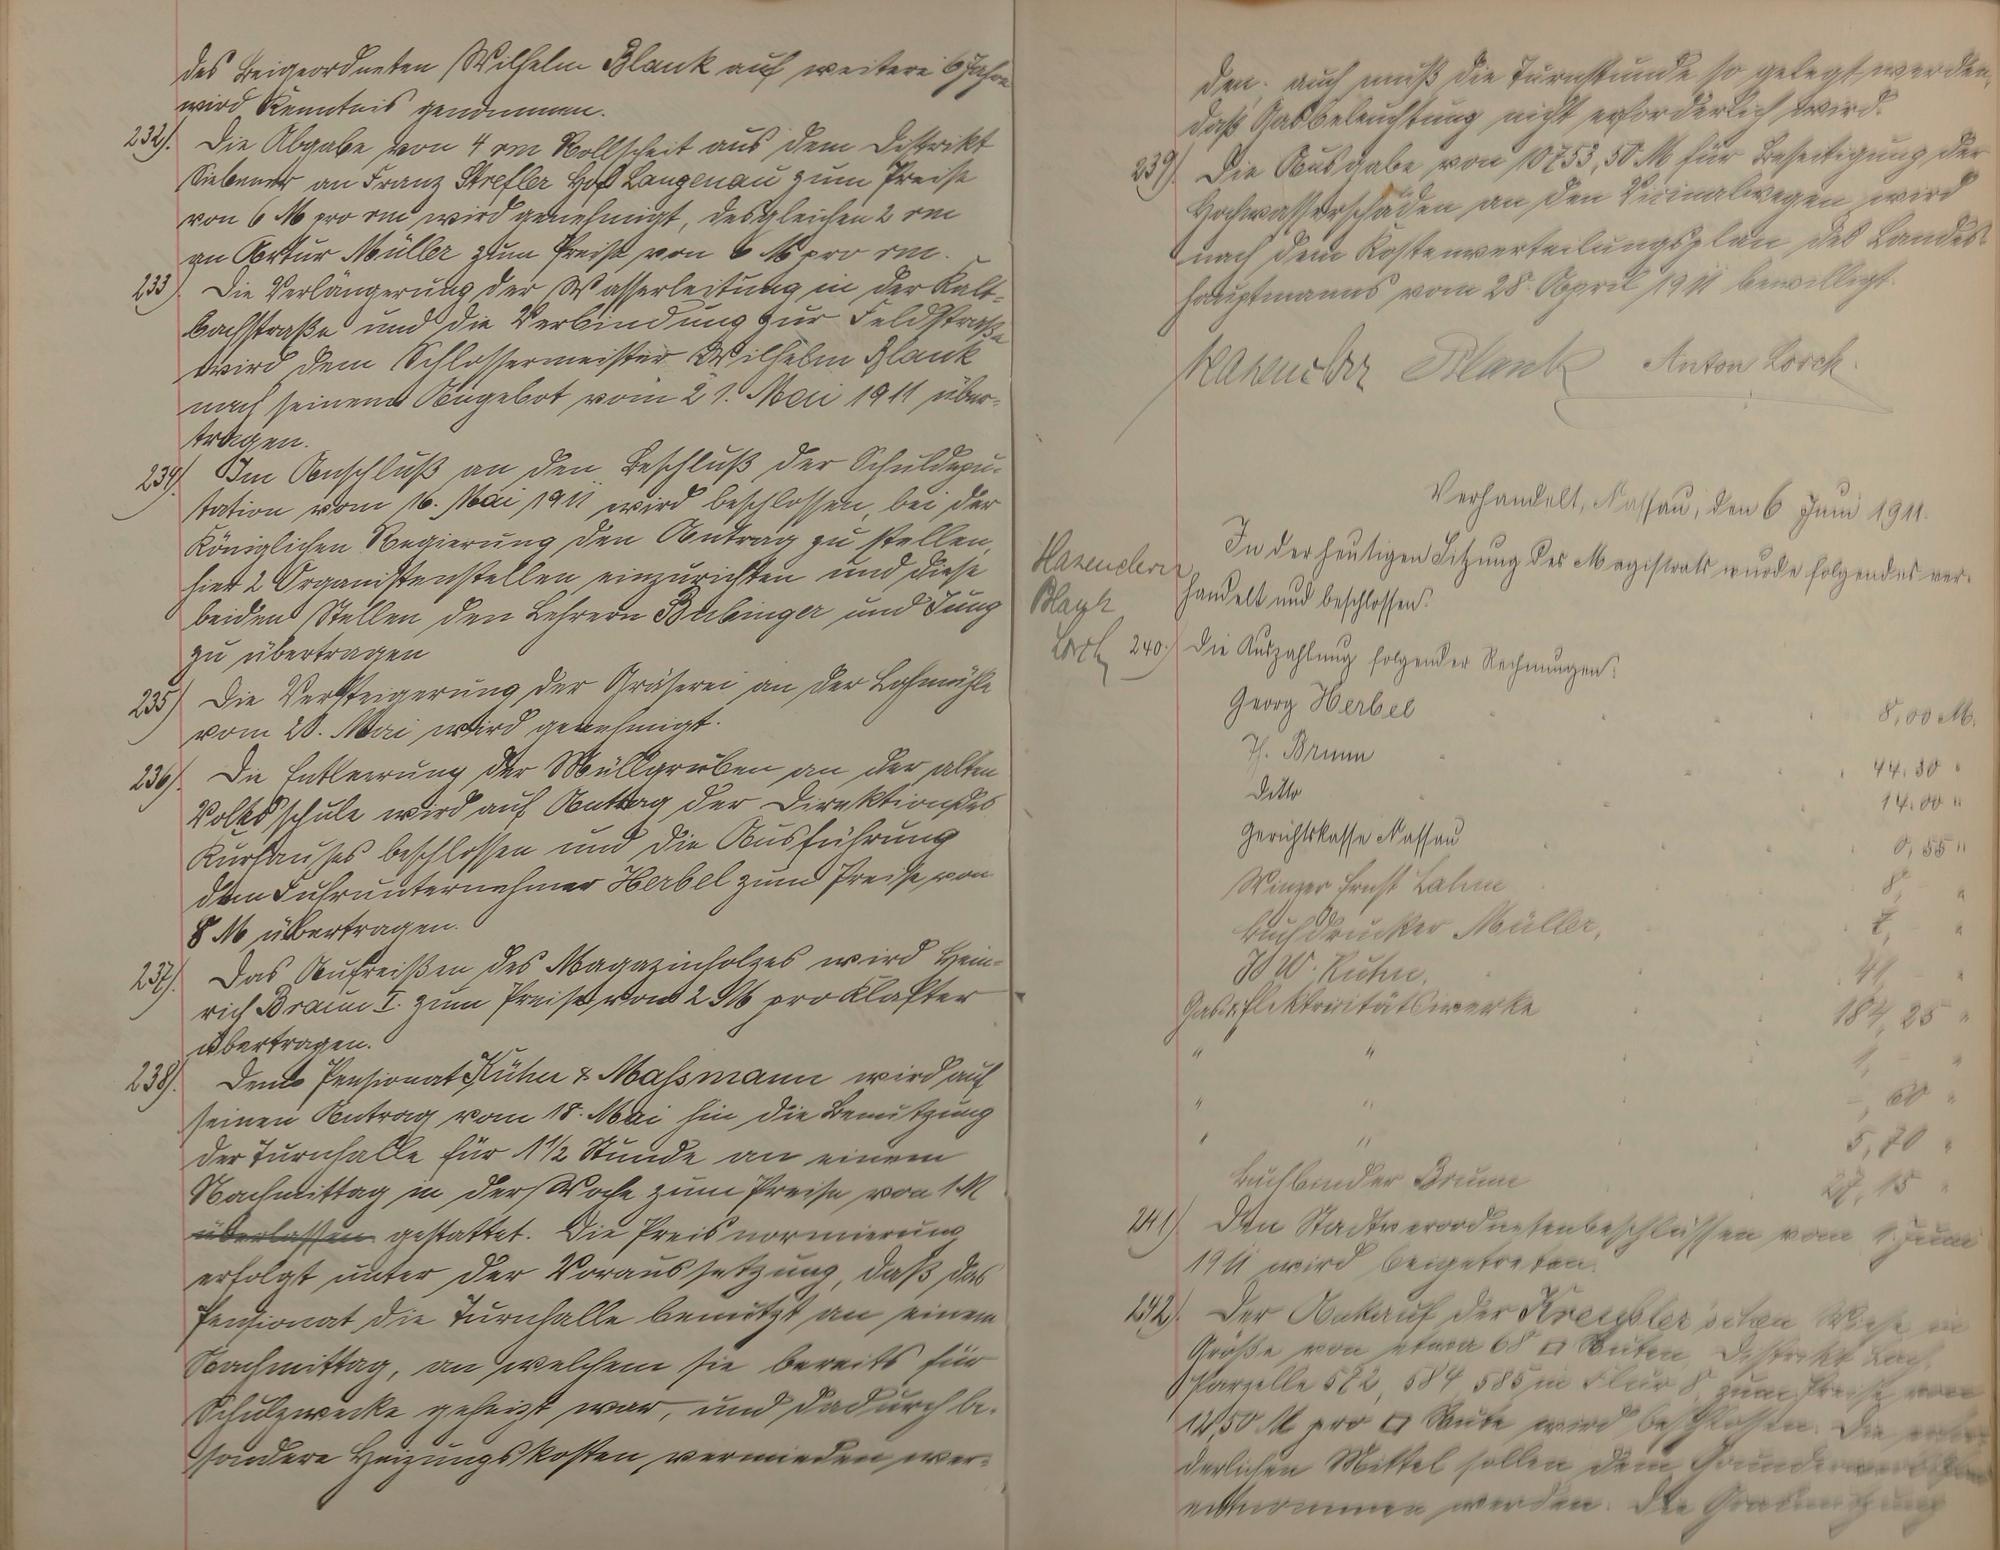 des Beigeordneten Wilhelm Blank auf weitere 6 Jahre
wird Kenntnis genommen.
232). Die Abgabe von 4 rm Rollscheit aus dem Distrikt
an Franz Strefler Hof Langenau zum Preise
von 6 M pro rm wird genehmigt, desgleichen 2 rm
an Artur Müller zum Preise von 6 M pro rm.
233). Die Verlängerung der Wasserleitung in der Kalt-
bachstraße und die Verbindung zur Feldstraße
wird dem Schlossermeister Wilhelm Blank
nach seinem Angebot vom 21. Mai 1911 über-
tragen.
234). Im Anschluß an den Beschluß der Schuldepu-
tation vom 16. Mai 1911 wird beschlossen, bei der
Königlichen Regierung den Antrag zu stellen,
hier 2 Organistenstellen einzurichten und diese
beiden Stellen den Lehrern Bubinger und Jung
zu übertragen
235) Die Versteigerung der Gräserei an der Lohmühle
vom 20. Mai wird genehmigt.
236). Die Entleerung der Müllgruben an der alten
Volksschule wird auf Antrag der Direktion des
Kurhauses beschlossen und die Ausführung
dem Fuhrunternehmer Herbel zum Preise von
8 M übertragen.
237). Das Aufreißen des Magazinholzes wird Hein-
rich Braun I. zum Preise von 2 M pro Klafter
übertragen.
238). Dem Pensionat Kühn & Massmann wird auf
seinen Antrag vom 18. Mai hin die Benutzung
der Turnhalle für 1 1/2 Stunde an einem
Nachmittag in der Woche zum Preise von 1 M
überlassen gestattet. Die Preisnormierung
erfolgt unter der Voraussetzung, daß das
Pensionat die Turnhalle benützt an einem
Nachmittag, an welchem sie bereits für
Schulzwecke geheizt war, und dadurch be-
sondere Heizungskosten vermieden wer-
den. auch muß die Turnstunde so gelegt werden,
daß Gasbeleuchtung nicht erforderlich wird.
239). Die Ausgabe von 10753,50 M für Beseitigung der
Hochwasserschäden an den Vicinalwegen wird
nach dem Kostenverteilungsplan des Landes-
hauptmanns vom 28. April 1911 bewilligt.
Hasenclever Blank Anton Lorch.
Verhandelt, Nassau, den 6 Juni 1911.
In der heutigen Sitzung des Magistrats wurde folgendes ver-
handelt und beschlossen:
Hasenclever
Blank
Lorch
240.) Die Auszahlung folgender Rechnungen:
Georg Herbel 8,00 M.
Th. Brunn 44.30 "
Ditto 14.00 "
Gerichtskasse Nassau 0,55 "
Winzer Ernst Lahm 8, "
Buchdrucker Müller,
W. Kuhn. 41, "
Gas & Elektrizitätswerke 184,25 "
" " 1, "
" " -,60 "
" " 5,70 "
Buchbinder Brunn 27,15 "
241). Den Stadtverordnetenbeschlüssen vom 1. Juni
1911 wird beigetreten.
242). Der Ankauf der Kreusler'schen Wiese in
Größe von etwa 68 □ Ruten, Distrikt
Parzelle 582, 584 585 in Flur 8, zum Preise von
12,50 M pro □ Rute wird beschlossen. Die erfor-
derlichen Mittel sollen dem
entnommen werden. Die